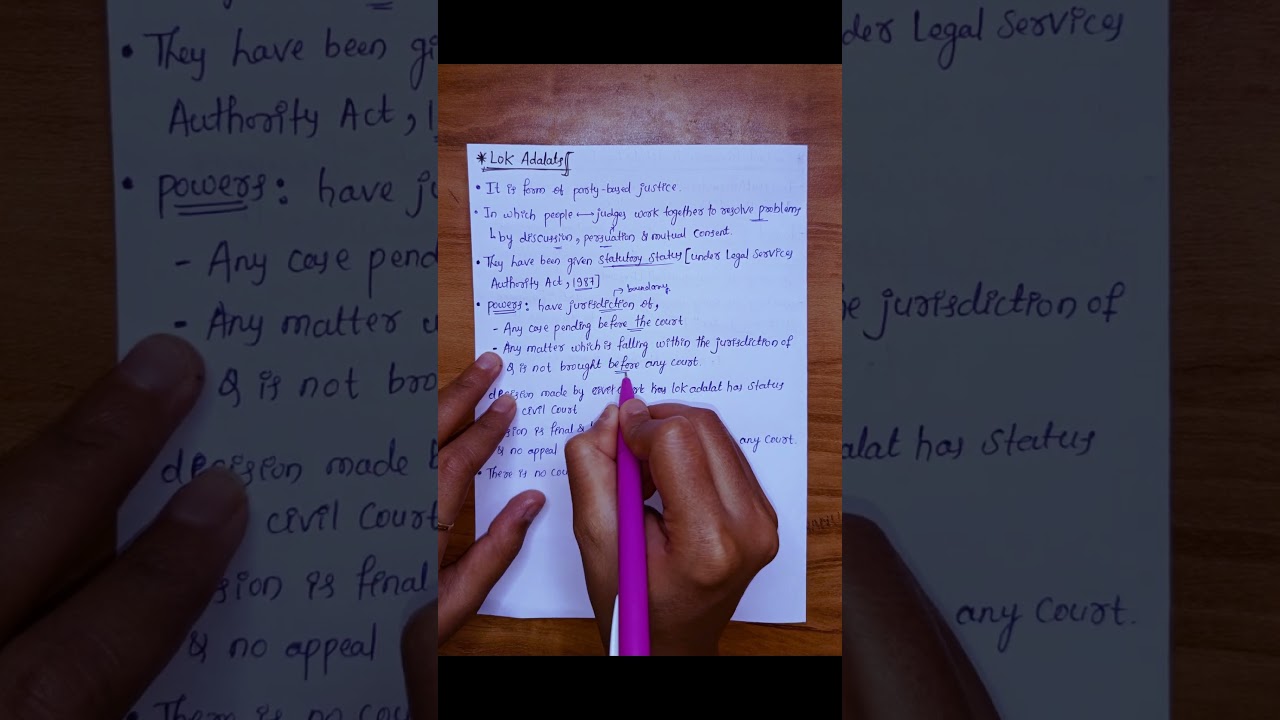 * Lok Adalats
• It is form of party-based justice.
• In which people ⟷ judges work together to resolve problems
↳ by discussion, persuation & mutual consent.
• They have been given statutory status [under Legal Services
Authority Act, 1987]
→ boundary
• powers: have jurisdiction of,
- Any case pending before the court
- Any matter which is falling within the jurisdiction of
& is not brought before any court.
decision made by has lok adalat has status
civil court
is final &
& no appeal any court.
• There is no